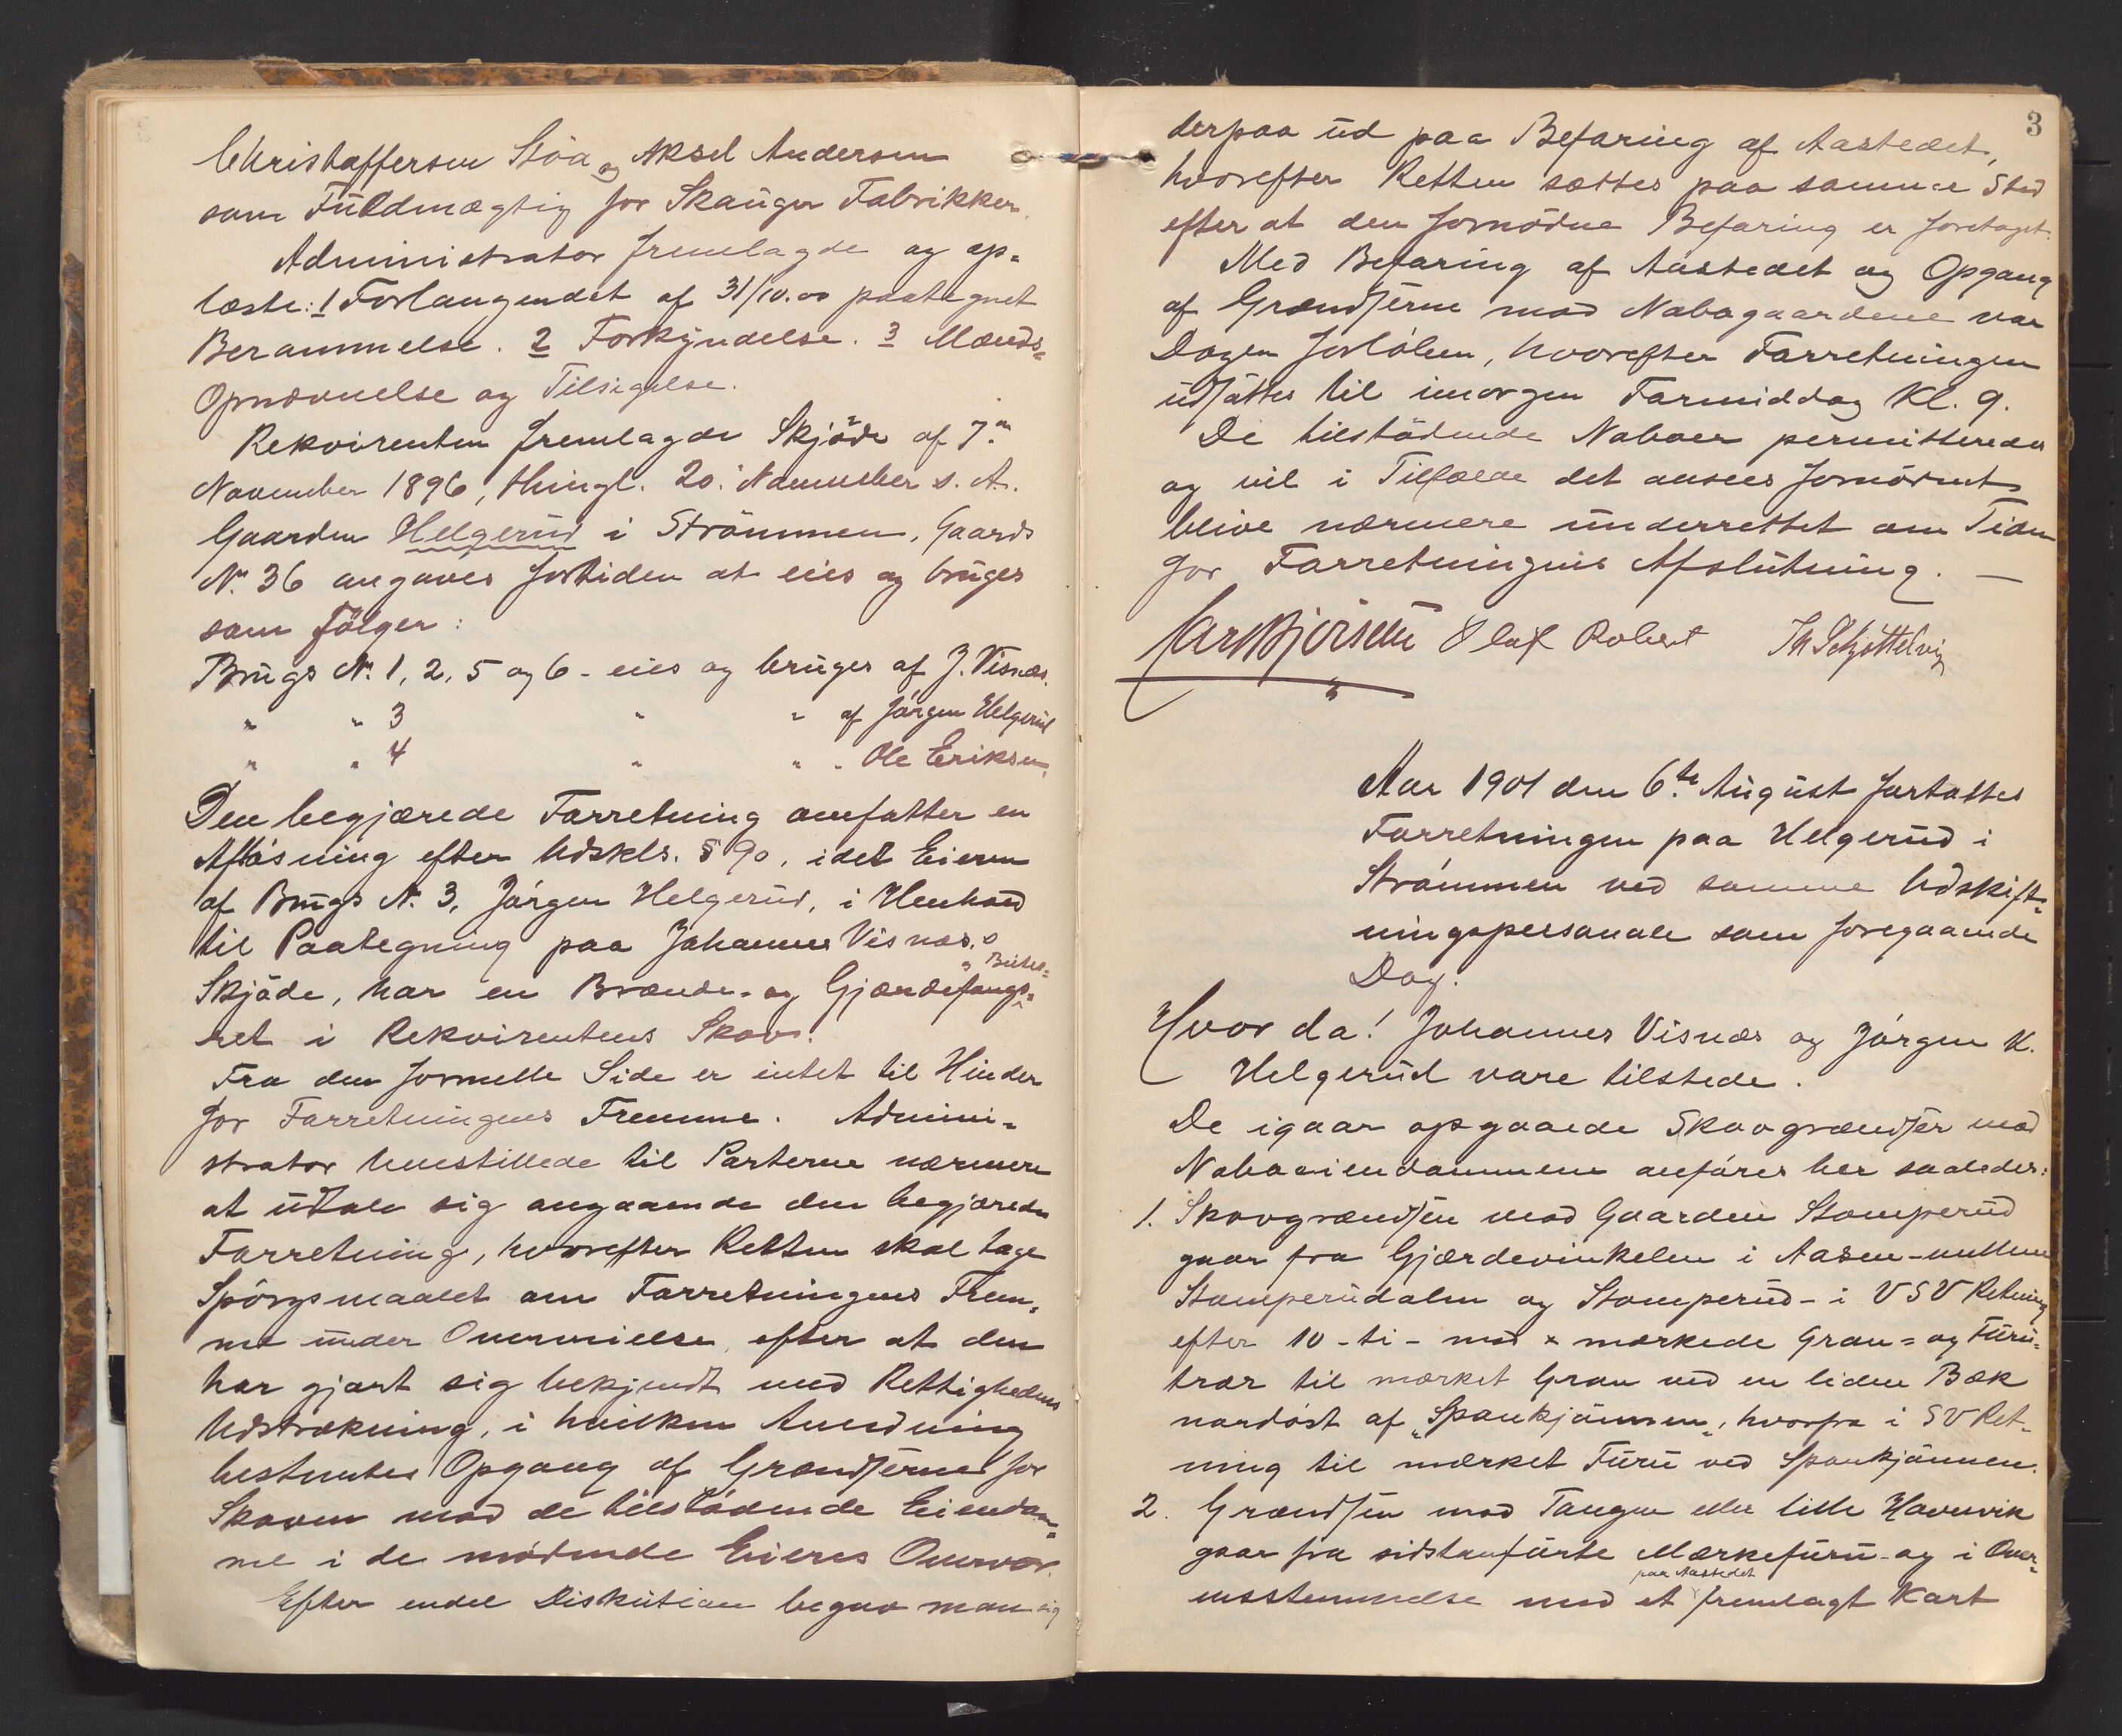 Christoffersen Stöa og Aksel Andersen
som Fuldmægtig for Skauger Fabrikker.
Administrator fremlagde og op-
læste: 1 Forlangendet af 31/10.00 paategnet
Berammelse. 2 Forkyndelse. 3 Mænds-
Opnævnelse og Tilsigelse.
Rekvirenten fremlagde Skjöde af 7de
November 1896, thingl. 20. November s. A.
Gaarden Helgerud i Strömmen, Gaards
No. 36 angaves fortiden at eies og bruges
som fölger:
Brugs No. 1, 2, 5 og 6 - eies og bruges af J. Visnæs.
" " 3 " " af Jörgen Helgerud
" " 4 " " " Ole Eriksen.
Den begjærede Forretning omfatter en
Aflösning efter Udskls. § 90, idet Eieren
af Brugs No. 3, Jörgen Helgerud, i Henhold
til Paategning paa Johannes Visnæs's
Skjöde, har en Brænde- og Gjærdefangs-
ret i Rekvirentens Skov.
Fra den formelle Side er intet til Hinder
for Forretningens Fremme. Admini-
strator henstillede til Parterne nærmere
at udtale sig angaaende den begjærede
Forretning, hvorefter Retten skal tage
Spörgsmaalet om Forretningens Frem-
me under Overveielse, efter at den
har gjort sig bekjendt med Rettighedens
Udstrækning, i hvilken Anledning
bestemtes Opgang af Grændserne for
Skoven mod de tilstödende Eiendom-
me i de mödende Eieres Overvær.
Efter endel Diskution begav man sig
3
derpaa ud paa Befaring af Aastedet,
hvorefter Retten sættes paa samme Sted
efter at den fornödne Befaring er foretaget.
Med Befaring af Aastedet og Opgang
af Grændserne mod Nabogaardene var
Dagen forlöben, hvorefter Forretningen
udsattes til imorgen Formiddag Kl. 9.
De tilstödende Naboer permitteredes
og vil i Tilfælde det ansees fornödent
blive nærmere underrettet om Tiden
for Forretningens Afslutning. —
Olaf Robert
Aar 1901 den 6te August fortsattes
Forretningen paa Helgerud i
Strömmen ved samme Udskift-
ningspersonale som foregaaende
Dag.
Hvor da! Johannes Visnæs og Jörgen K.
Helgerud vare tilstede.
De igaar opgaaede Skovgrændser mod
Naboeiendommene anföres her saaledes:
1. Skovgrændsen mod Gaarden Stomperud
gaar fra Gjærdevinkelen i Aasen - mellem
Stomperudalen og Stomperud - i VSV Retning
efter 10 - ti - med x mærkede Gran- og Furu-
trær til mærket Gran ved en liden Bæk
nordöst af "Spankjönnen", hvorfra i SV Ret-
ning til mærket Furu ved Spankjönnen.
2. Grændsen mod Tangen eller lille Havnvik
gaar fra sidstanförte Mærkefuru - og i Over-
paa Aastedet
ensstemmelse med et fremlagt Kart